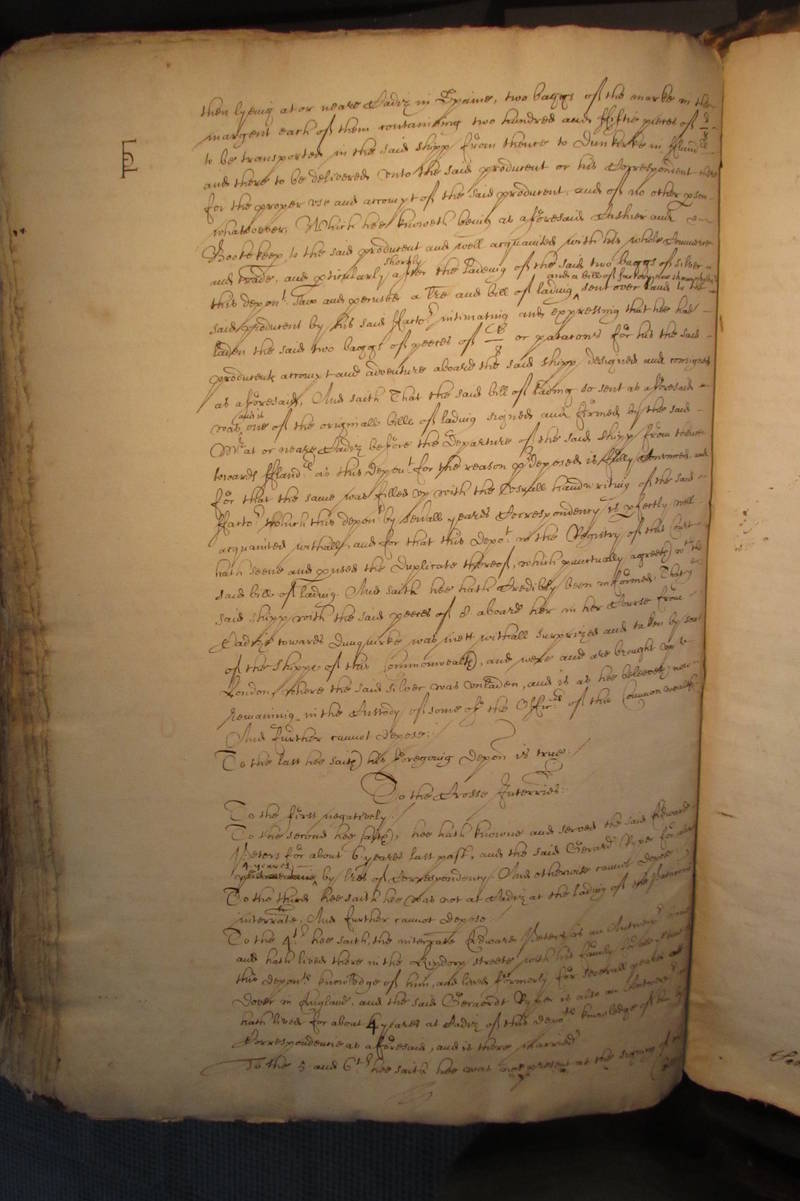 then lyeing at or neare Cadiz in Spaine, two baggs of the marke in the
margent each of them contaning two hundred and fiftie pieces of 8/8
to be transported in the said shipp from thence to Dunkirke in Fland^rs
and there to be delivered unto the said producent or his Correspondent
for the proper use and accompt of the said producent, and of no other pson
whatsoever. Which hee knoweth being as aforesaid Cashier and
Bookekeep to the said producent and well acquainted with his whole
and trade, and pticularly shortly after the ladeing of the said two baggs of silver
this depon^t saw and perused a lre and bill of lading and a bill of sent over and to the
said producent by his said Facto^r intimating and expressing that hee had
laden the said two baggs of peeces of 8/8 or patacons for his the said
producents accompt and adventure aboard the said shipp designed and consigned
as aforesaid, And saith That the said bill of lading so sent as aforesaid
was and is one of the originall bills of lading signed and firmed by the said
M^r at or neare Cadiz before the departure of the said shipp from thence
towards Fland^rs as this depon^t for the reason p^rdeposed is fully and
for that the same was filled up with the usuall handwriting of the said
Facto^r which this depon^t by severall yeares Correspondency is pfectly well
acquainted withall, and for that this depo^t in the Registry of this Court
hath seene and pused the duplicate thereof, which punctually agreeth w^th the
said bill of lading. And saith hee hath Credibly been informed That y^e
said shipp with the said peeces of 8 aboard her in her Course from
Cadize towards Dunquirke was mett withall surprized and taken by some
of the shipps of this Commonwealth, and were and are brought up to
London, where the said silver was unladen, and is as hee beleeveth now
remaining in the Custody of some of the Offic^rs of this Common wealth
And further cannot depose:
To the last hee saith his foregoing depon is true:
To the Crosse Interries:
To the first negatively.
To the second hee saith, hee hath knowne and served the said Edward
Peters for about 6 yeares last past, and the said Gerard for
yeares by lres of Correspondency. And otherwise cannot depose
To the third hee saith hee was not at Cadiz at the lading of the
interrate, And further cannot depose
To the 4^th hee saith, the interrate Edward Peters is an Antwerp
and hath lived there in the streete with his family
this depon^ts knowledge of him, and lived formerly for severall yeares at
Dover in England, and the said Geraerdt is also an
hath lived for about 4 yeares at Cadiz of this depo^ts knowledge of him by
Correspondence as aforesaid, and is there married
To the 5 and 6^th hee saith hee was not present at the signing of